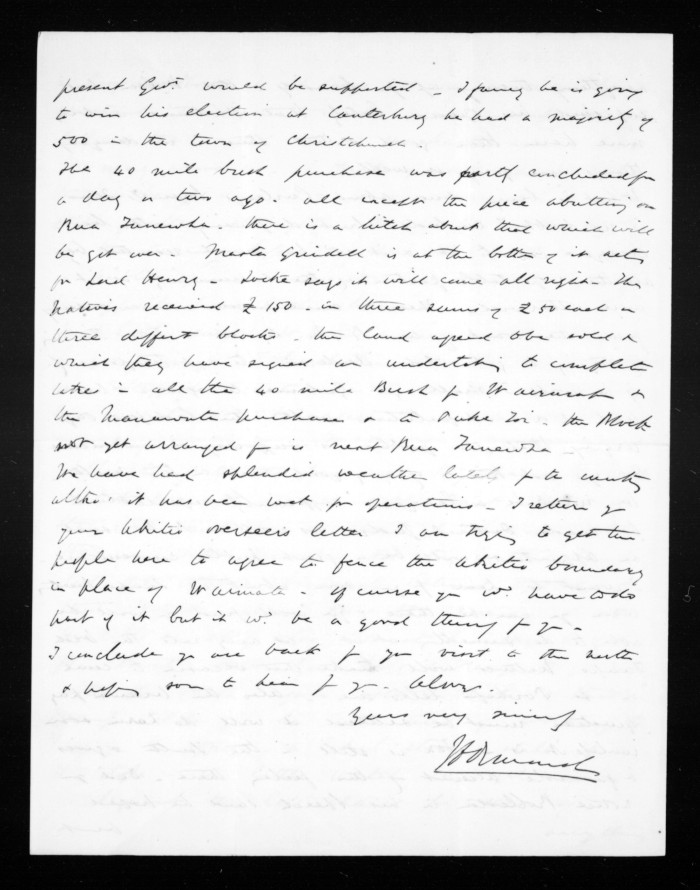 present Govt. would be supported - I fancy he is going
to win his election at Canterbury he had a majority of
500 in the town of Christchurch.
The 40 mile bush purchase was partly concluded for
a day or two ago. all except the piece abutting on
Rua Tanewha. there is a hitch about that which will
be got over. Master Grindell is at the bottom of it acting
for Lord Henry. Locke says it will come all right - The
Natives received £150. in three sums of £50 each on
three different blocks. the land agreed to be sold &
which they have signed an undertaking to complete
takes in all the 40 mile Bush fr Wairarapa &
the Manawatu purchase & to Puke Toi. the Block
not yet arranged for is next Rua Tanewha -
We have had splendid weather lately for the country
altho' it has been wet for operations - I return yr
your Akitio overseers letter I am trying to get the
people here to agree to fence the Akitio boundary
in place of Waimate. of course you wd. have to do
part of it but it wd. be a good thing for you -
I conclude you are back fr your visit to the north
& hoping soon to hear fr you. Always
Yours very sincerely
J D Ormond